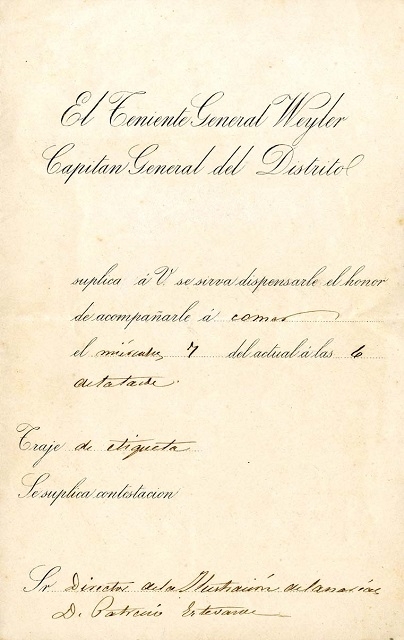 El Teniente General Weyler
Capitan General del Distrito
suplica á V. se sirva dispensarle el honor
de acompañarle á comer
el miércoles 7 del actual á las 6
de la tarde.
Traje de etiqueta
Se suplica contestacion
Sr Director de la Ilustración de Canarias
D. Patricio Estevanez